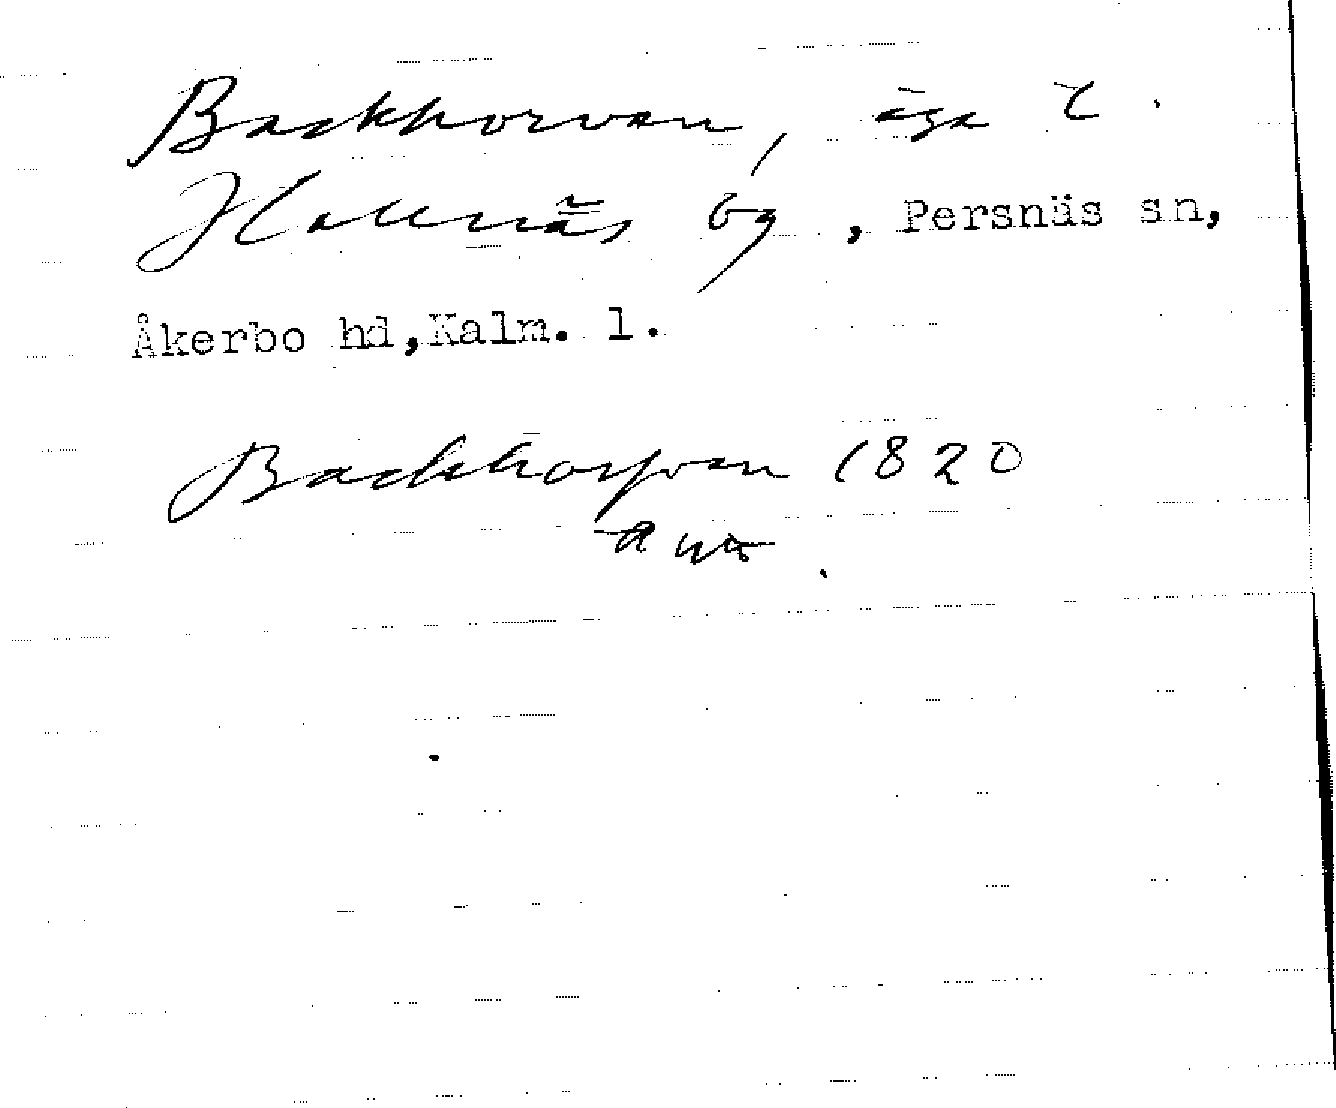 Backhorvan, äga i
Hallnäs by, Persnäs sn,
Åkerbo hd,Kalm. l.
Backhorfvan 1820